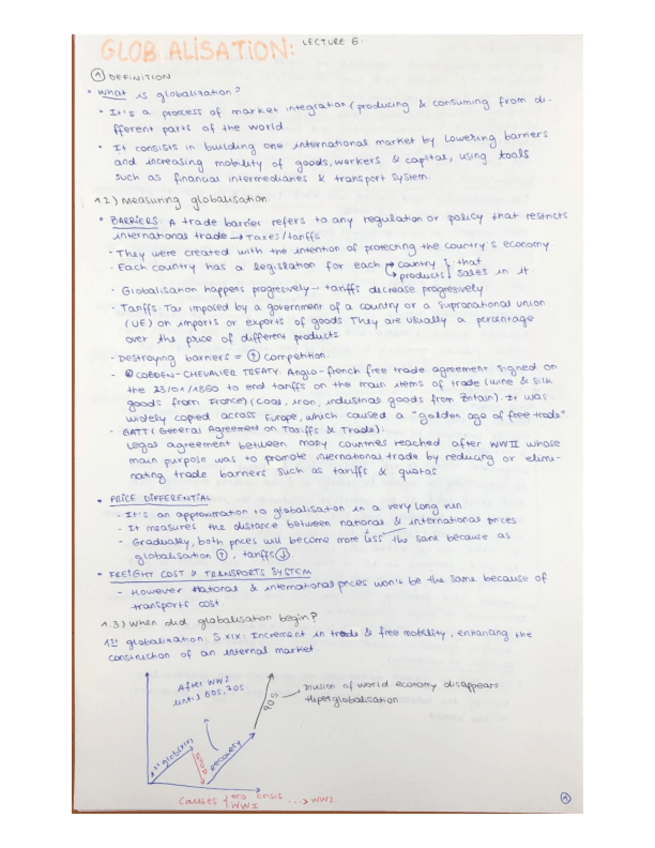 GLOBALISATION: LECTURE 6.
1 DEFINITION
• What is globalization?
• It's a process of market integration (producing & consuming from di-
fferent parts of the world
• It consists in building one international market by lowering barriers
and increasing mobility of goods, workers & capital, using tools
such as financial intermediaries & transport system.
1.2) Measuring globalisation
• BARRIERS: A trade barrier refers to any regulation or policy that restricts
international trade → Taxes/tariffs
- They were created with the intention of protecting the country's economy
- Each country has a legislation for each → country } that
→ products } sales in it
- Globalisation happens progresively — tariffs decrease progresively
- Tariffs: Tax imposed by a government of a country or a supranational union
(UE) on imports or exports of goods They are usually a percentage
over the price of different products
- Destroying barriers = ↑ competition.
- COBDEN-CHEVALIER TREATY: Anglo-french free trade agreement signed on
the 23/01/1860 to end tariffs on the main items of trade (wine & silk
goods from France) (Coal, iron, industrial goods from Britain). It was
widely copied across Europe, which caused a "golden age of free trade"
- GATT (General Agreement on Tariffs & Trade):
Legal agreement between many countries reached after WWII whose
main purpose was to promote international trade by reducing or elimi-
nating trade barriers such as tariffs & quotas
• PRICE DIFFERENTIAL
- It's an approximation to globalisation in a very long run.
- It measures the distance between national & international prices
- Gradually, both prices will become more less the same because as
globalisation ↑, tariffs ↓
• FREIGHT COST & TRANSPORTS SYSTEM
- However national & international prices won't be the same because of
transports cost
1.3) When did globalisation begin?
1st globalization: S XIX: Increment in trade & free mobility, enhancing the
construction of an internal market
After WW2
until 60s, 70s.
90s
Division of world economy disappears
Hyperglobalisation
1st glob(XIX)
recovery
Causes { eco crisis
WWI ...→ WW2
1